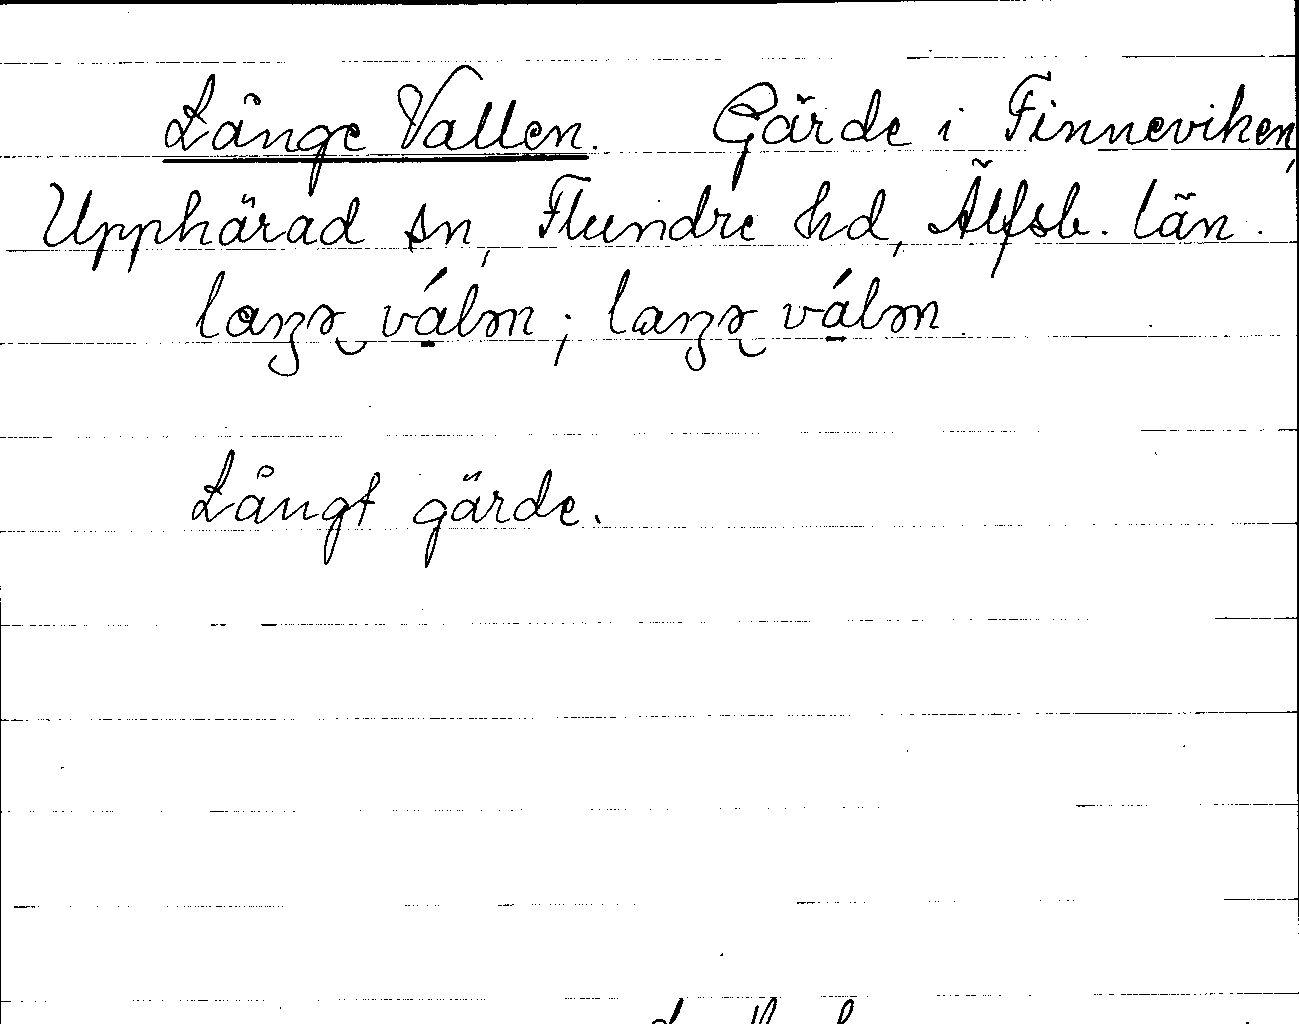 Långe Vallen. Gärde i Finneviken,
Upphärad sn, Flundre hd, Älfsb. län.
Långt gärde.